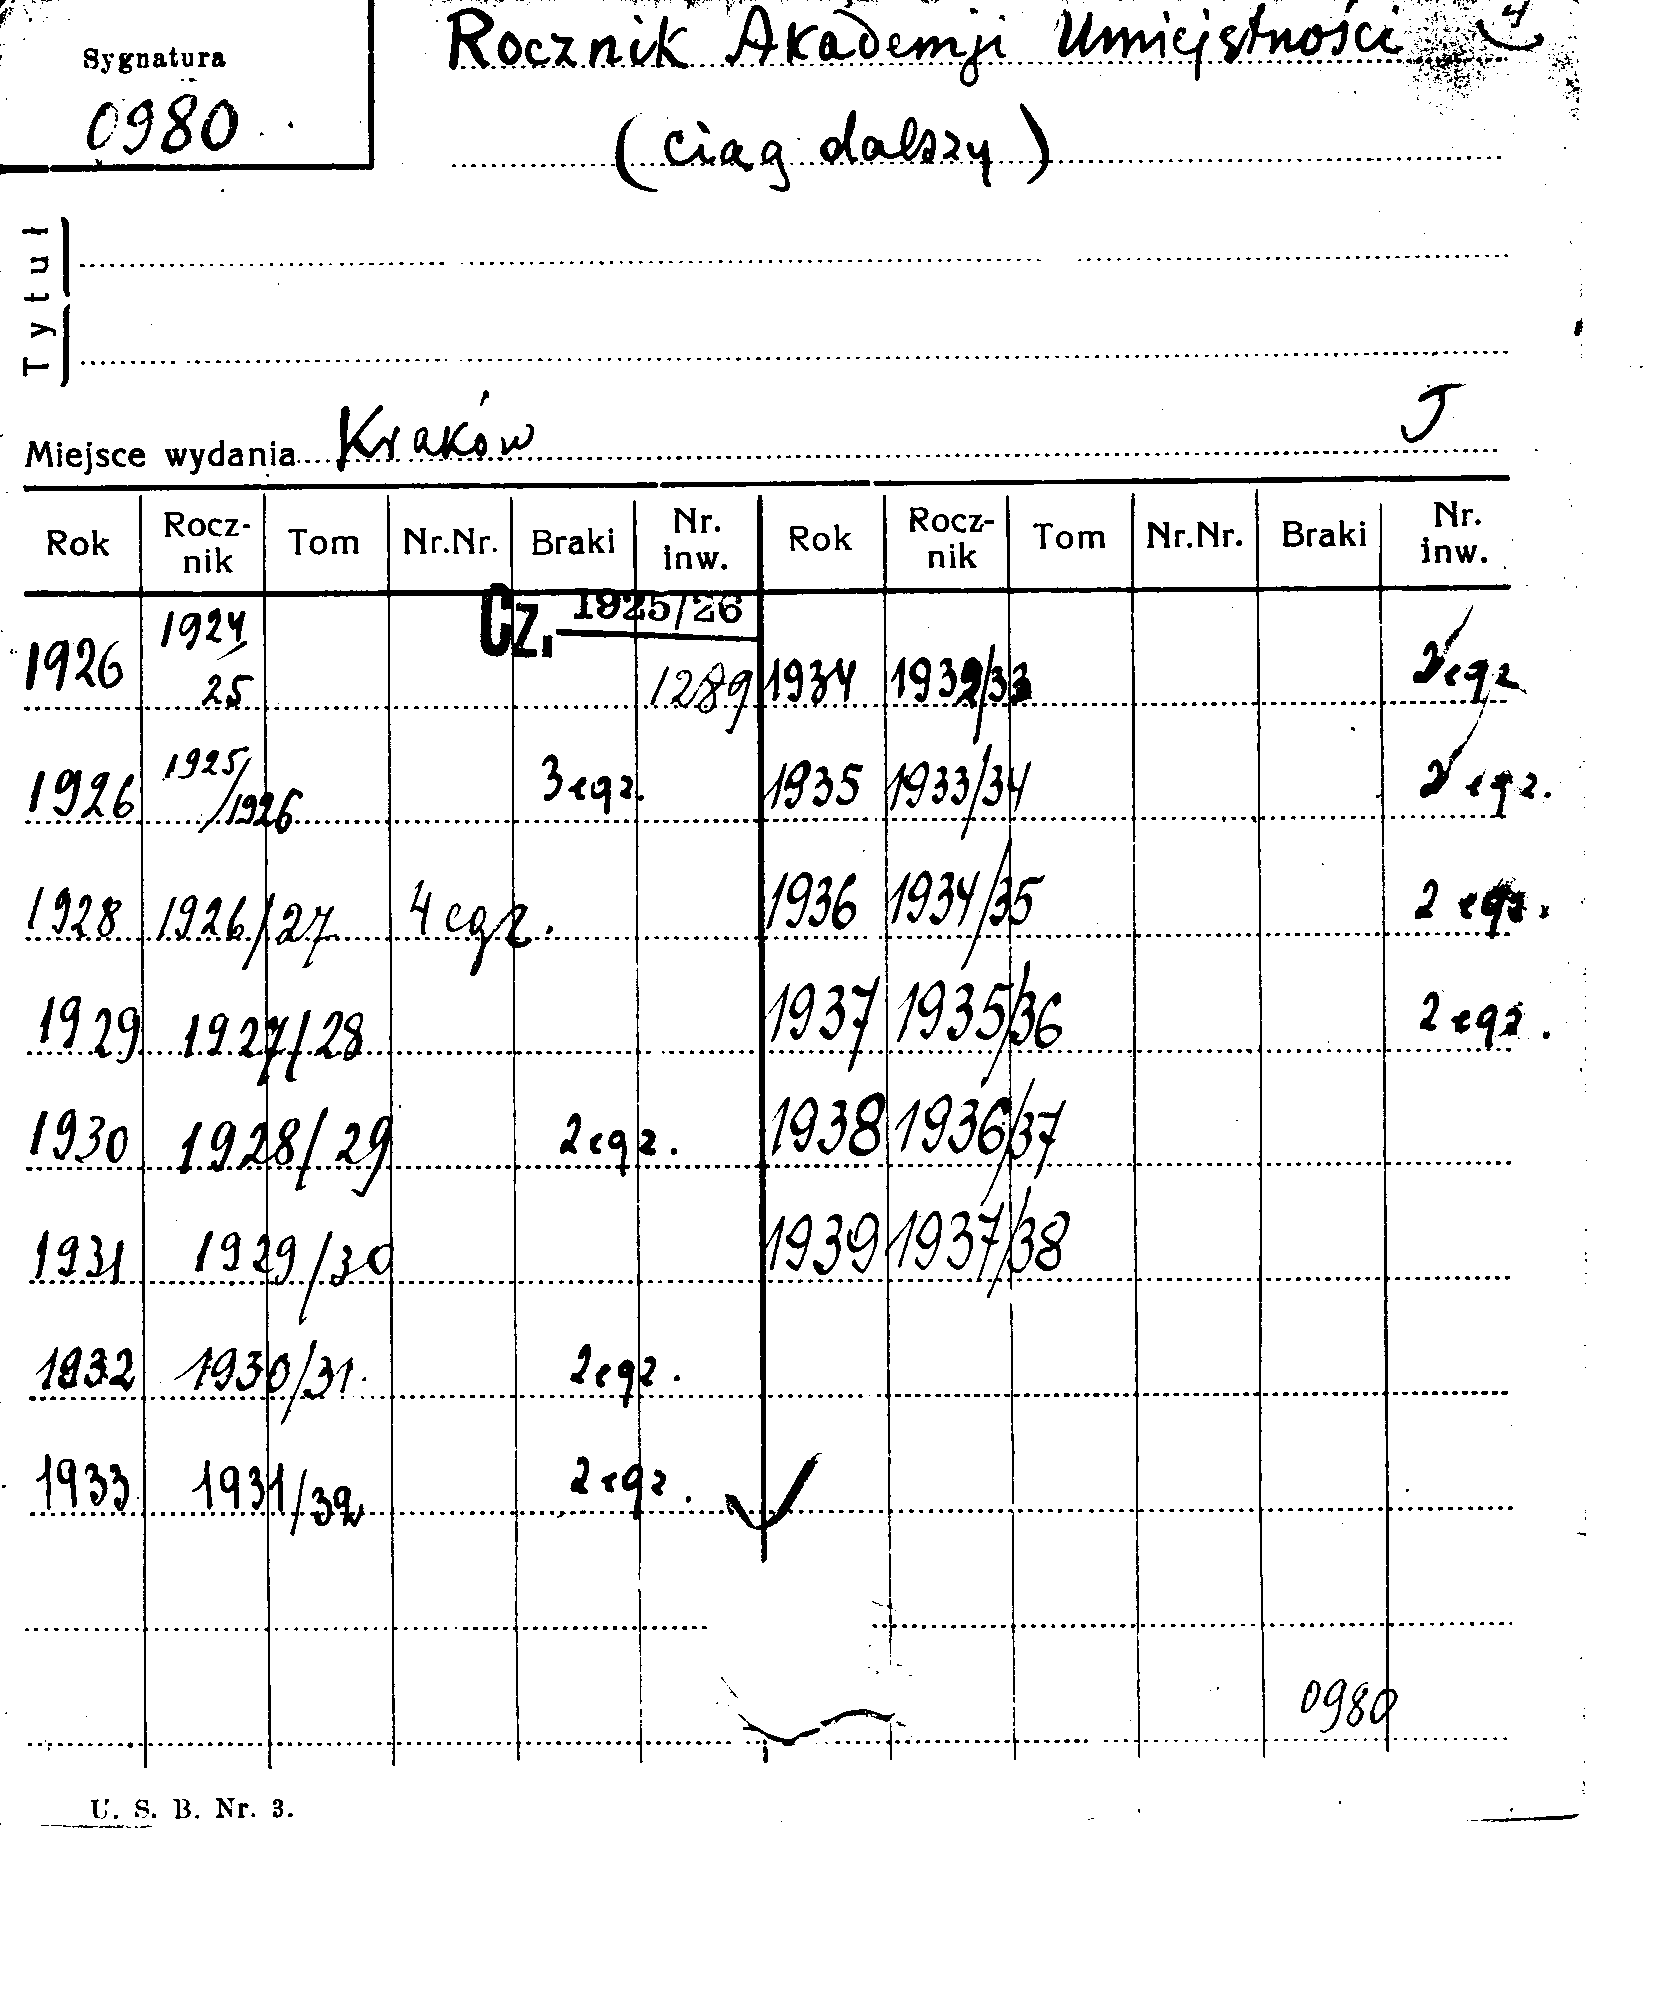 Sygnatura
0980
Rocznik Akademji Umiejętności
4
(ciąg dalszy)
Tytuł
Miejsce wydania Kraków
J
Rok Rocz-nik Tom Nr.Nr. Braki Nr. inw. Rok Rocz-nik Tom Nr.Nr. Braki Nr. inw.
Cz. 1925/26
1926 1924/25 1289 1934 1932/33 2 egz
1926 1925/1926 3 egz. 1935 1933/34 2 egz.
1928 1926/27 4 egz. 1936 1934/35 2 egz.
1929 1927/28 1937 1935/36 2 egz.
1930 1928/29 2 egz. 1938 1936/37
1931 1929/30 1939 1937/38
1932 1930/31 2 egz.
1933 1931/32 2 egz.
0980
U. S. B. Nr. 3.